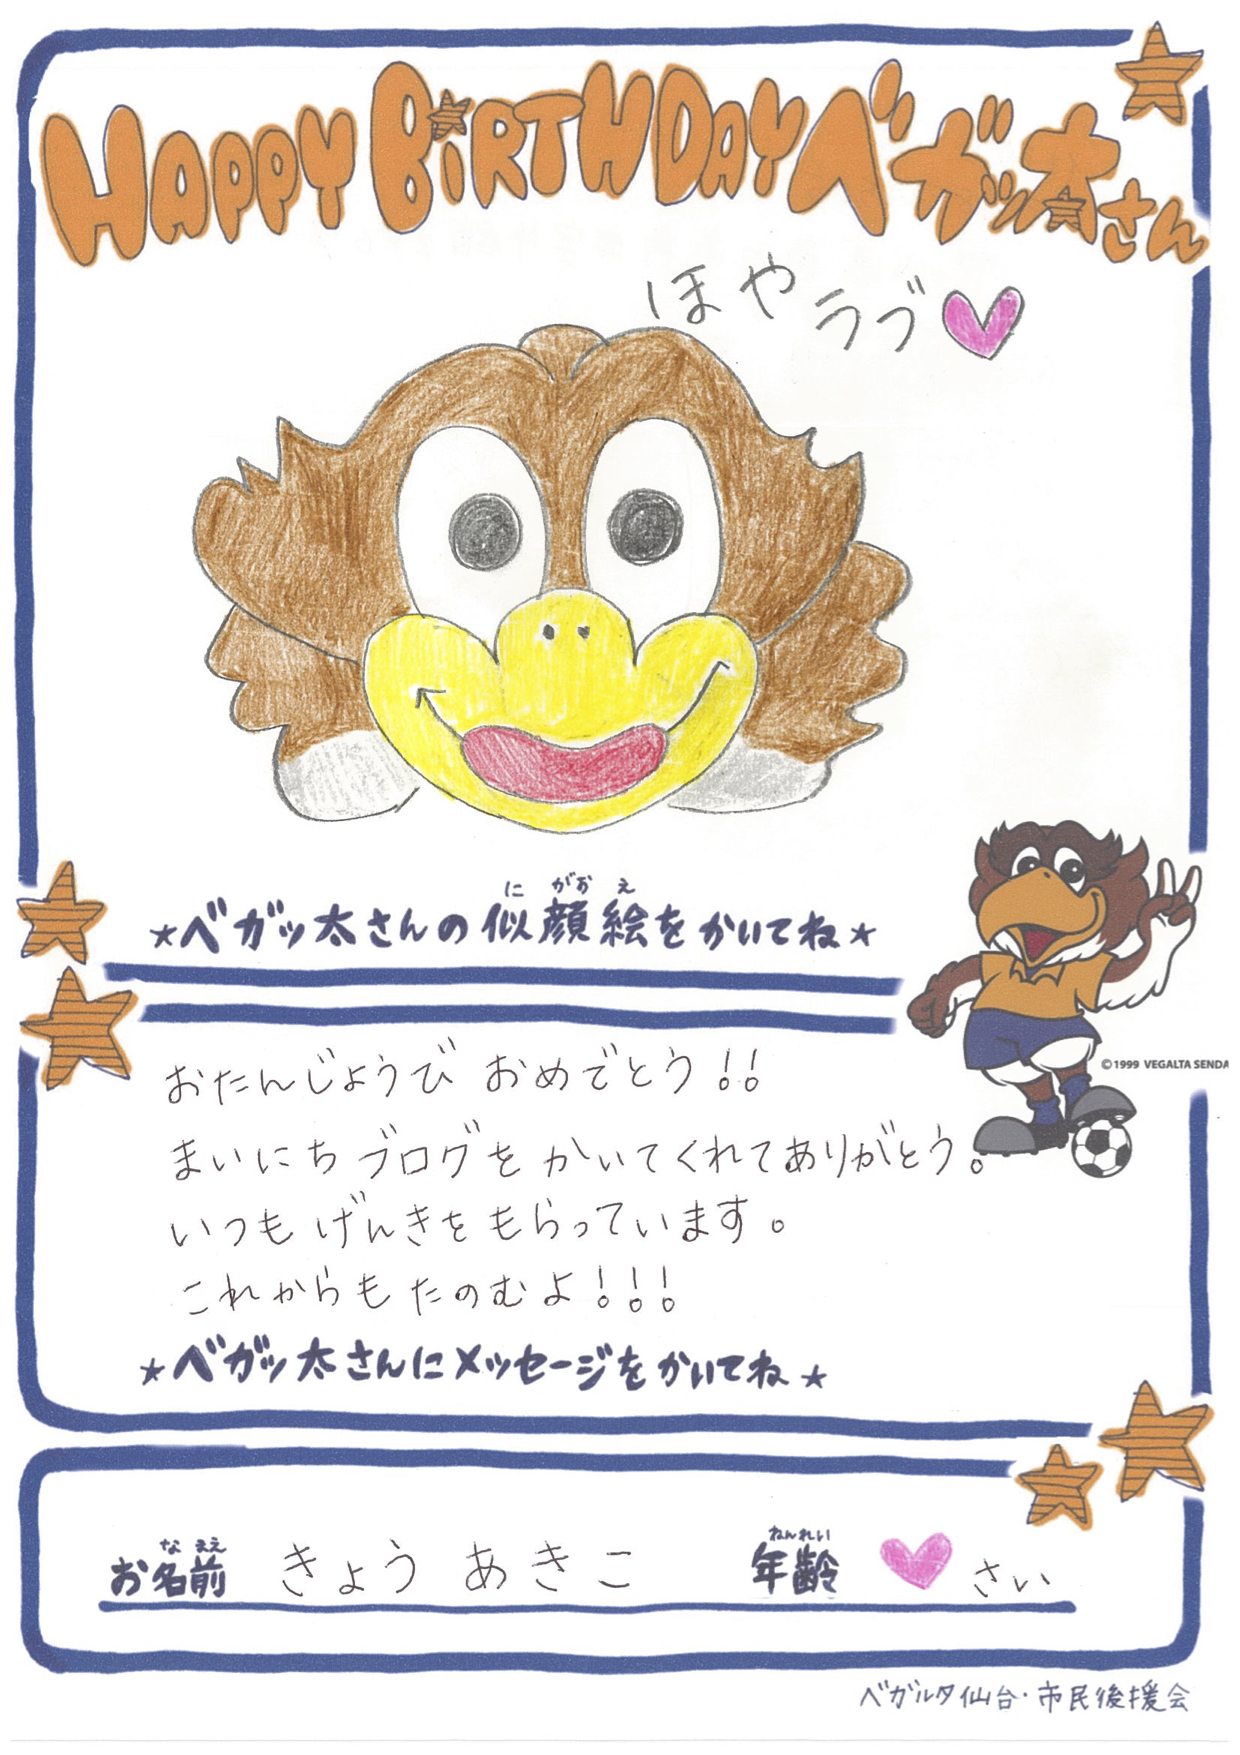 HAPPY BiRTHDAY ベガッ太さん
ほやラブ
★ベガッ太さんの似顔絵をかいてね★
に がお え
©1999 VEGALTA SENDA
おたんじょうび おめでとう!!
まいにちブログをかいてくれてありがとう。
いつもげんきをもらっています。
これからもたのむよ!!!
★ベガッ太さんにメッセージをかいてね★
な まえ ねんれい
お名前 きょう あきこ 年齢 さい
ベガルタ仙台・市民後援会